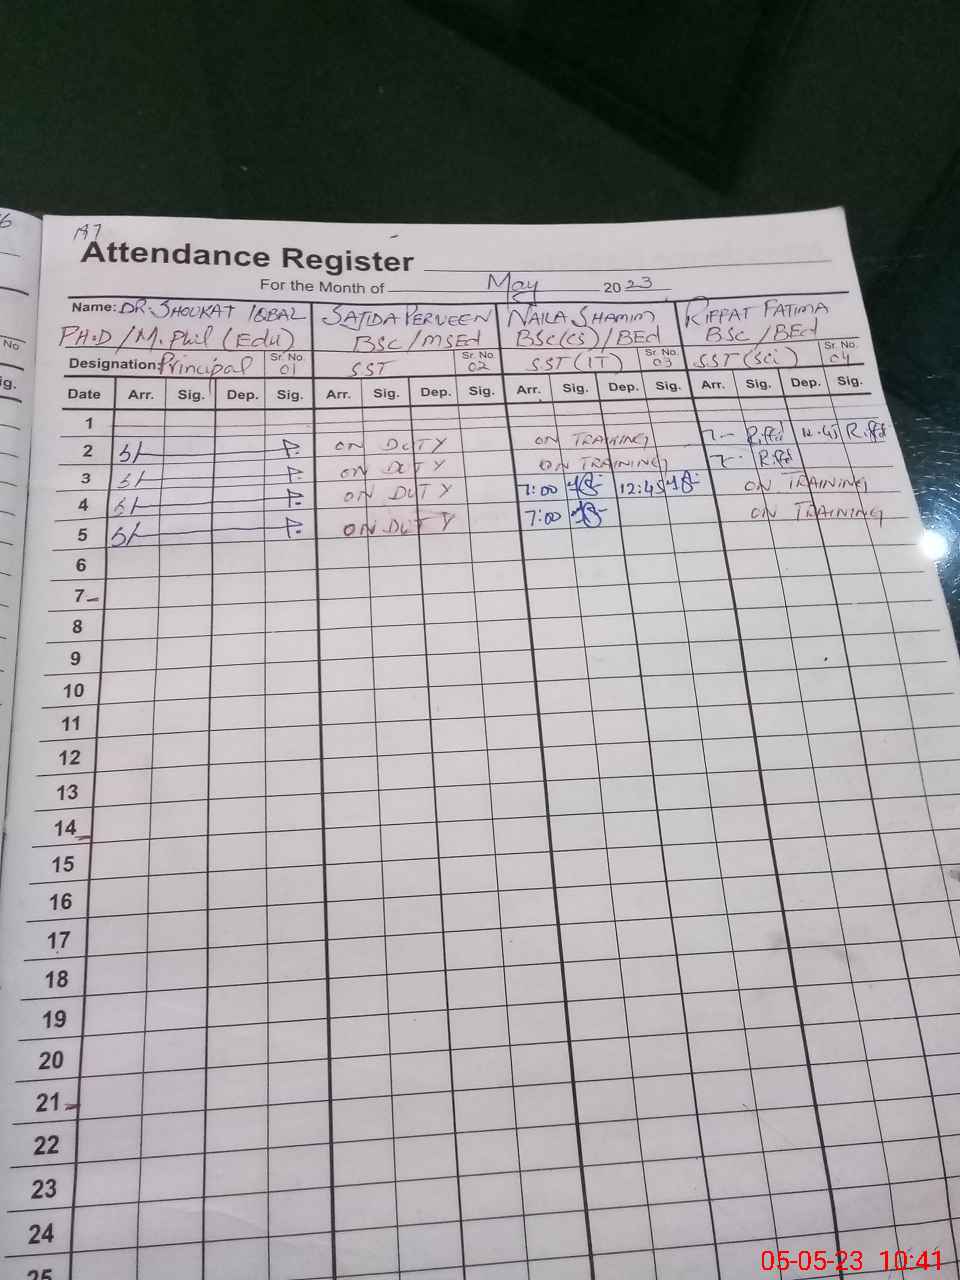 A7
Attendance Register
For the Month of May 2023
Name: DR. SHOUKAT IQBAL SAJIDA PERVEEN NAILA SHAMIM RIFFAT FATIMA
PH.D / M.Phil (Edu) BSc / MSEd BSc(CS) / BEd BSc / BEd
Designation: Principal Sr. No. 01 SST Sr. No. 02 SST (IT) Sr. No. 03 SST (Sci) Sr. No. 04
Date Arr. Sig. Dep. Sig. Arr. Sig. Dep. Sig. Arr. Sig. Dep. Sig. Arr. Sig. Dep. Sig.
1
2 ON DUTY ON TRAINING 7- Riffat 12:45 Riffat
3 ON DUTY ON TRAINING 7- Riffat
4 ON DUTY 7:00 12:45 ON TRAINING
5 ON DUTY 7:00 ON TRAINING
6
7
8
9
10
11
12
13
14
15
16
17
18
19
20
21
22
23
24
25
No
ig.
6
05-05-23 10:41